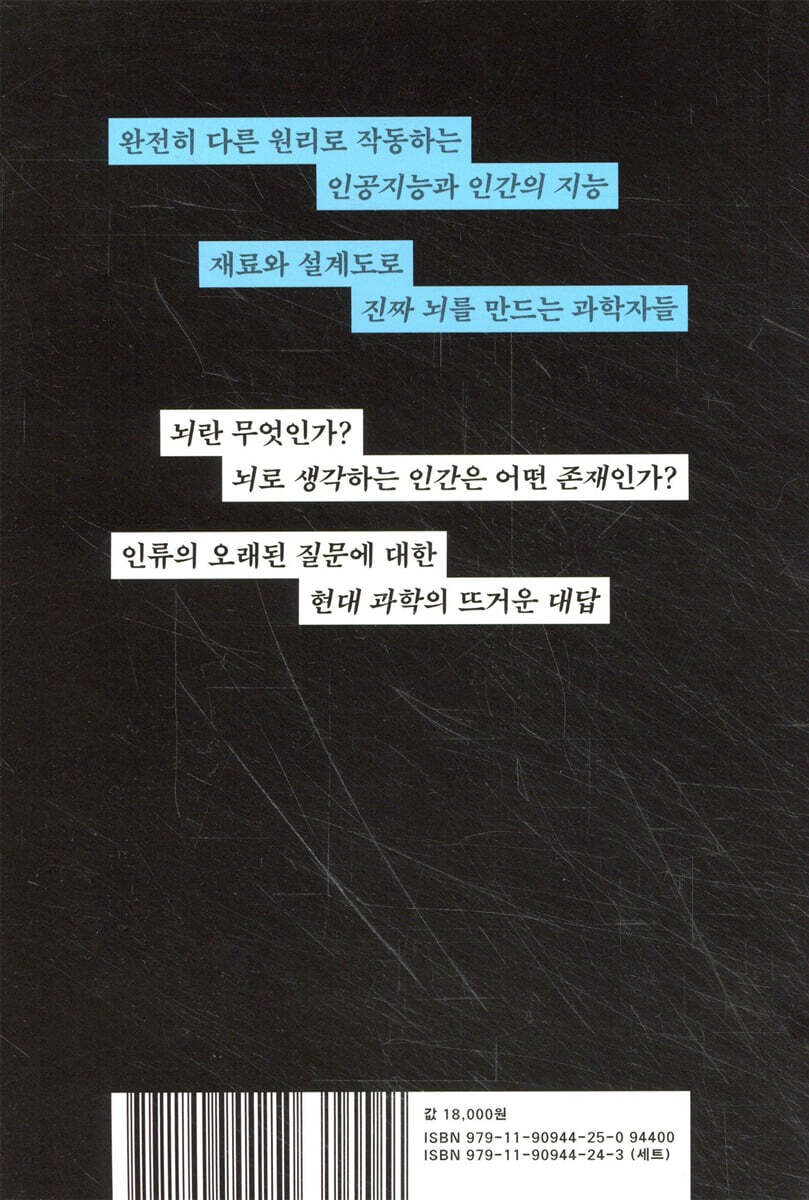 완전히 다른 원리로 작동하는
인공지능과 인간의 지능
재료와 설계도로
진짜 뇌를 만드는 과학자들
뇌란 무엇인가?
뇌로 생각하는 인간은 어떤 존재인가?
인류의 오래된 질문에 대한
현대 과학의 뜨거운 대답
값 18,000원
ISBN 979-11-90944-25-0 94400
ISBN 979-11-90944-24-3 (세트)